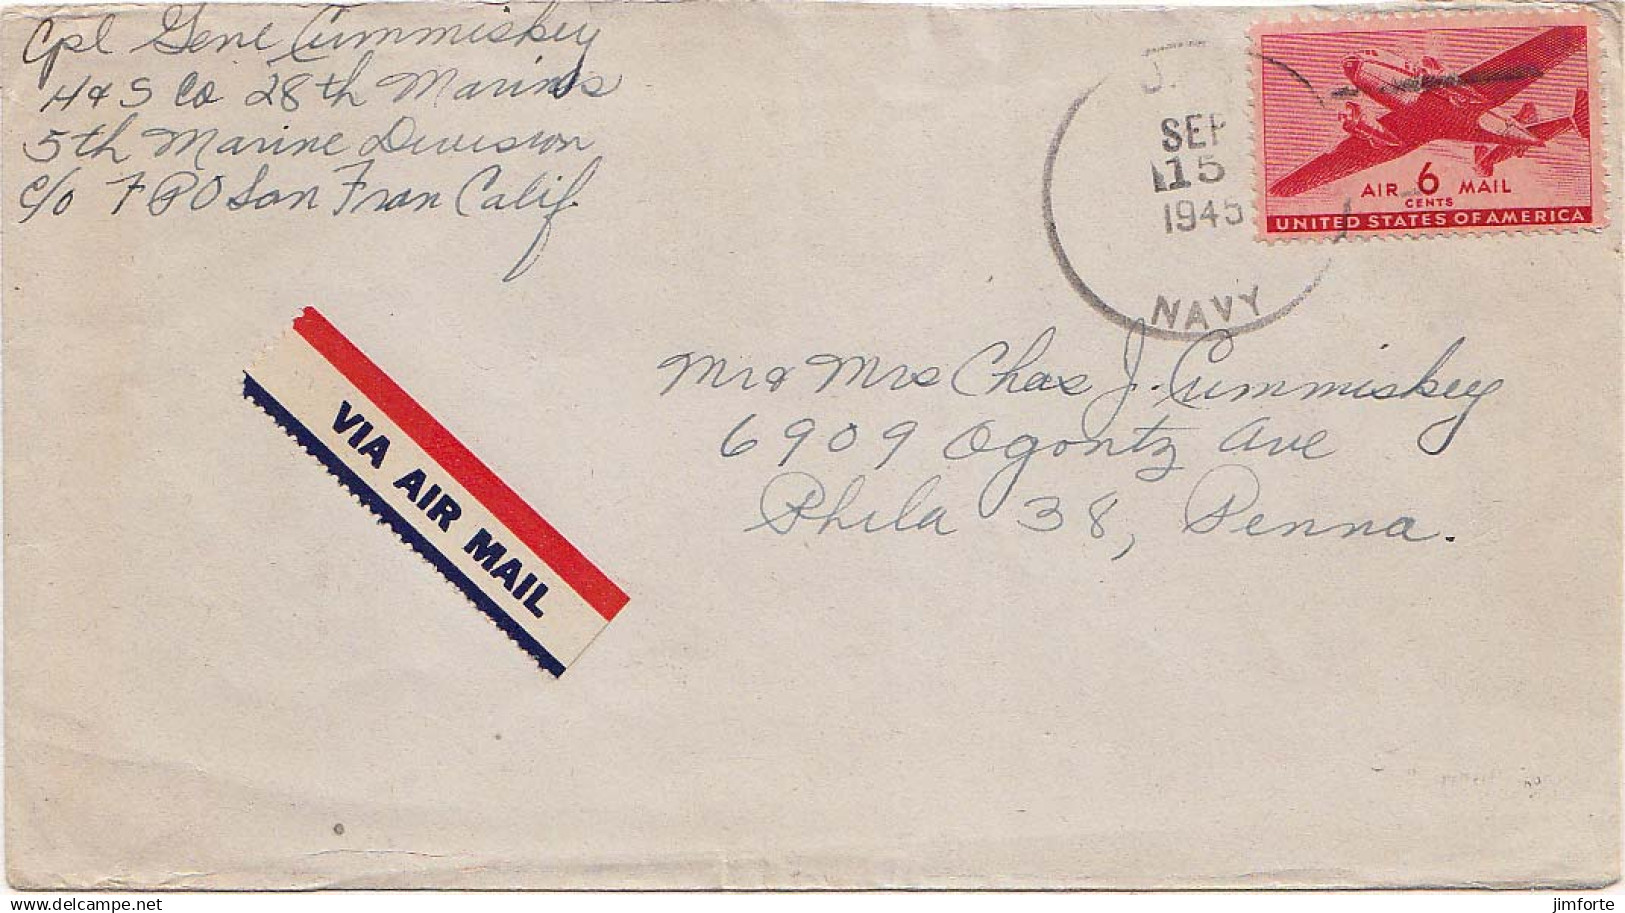 Cpl Gene Cummiskey
H & S Co 28th Marines
5th Marine Division
c/o FPO San Fran Calif.
SEP
15
1945
NAVY
AIR 6 MAIL
CENTS
UNITED STATES OF AMERICA
VIA AIR MAIL
Mr & Mrs Chas J. Cummiskey
6909 Ogontz Ave
Phila 38, Penna.
jimforte